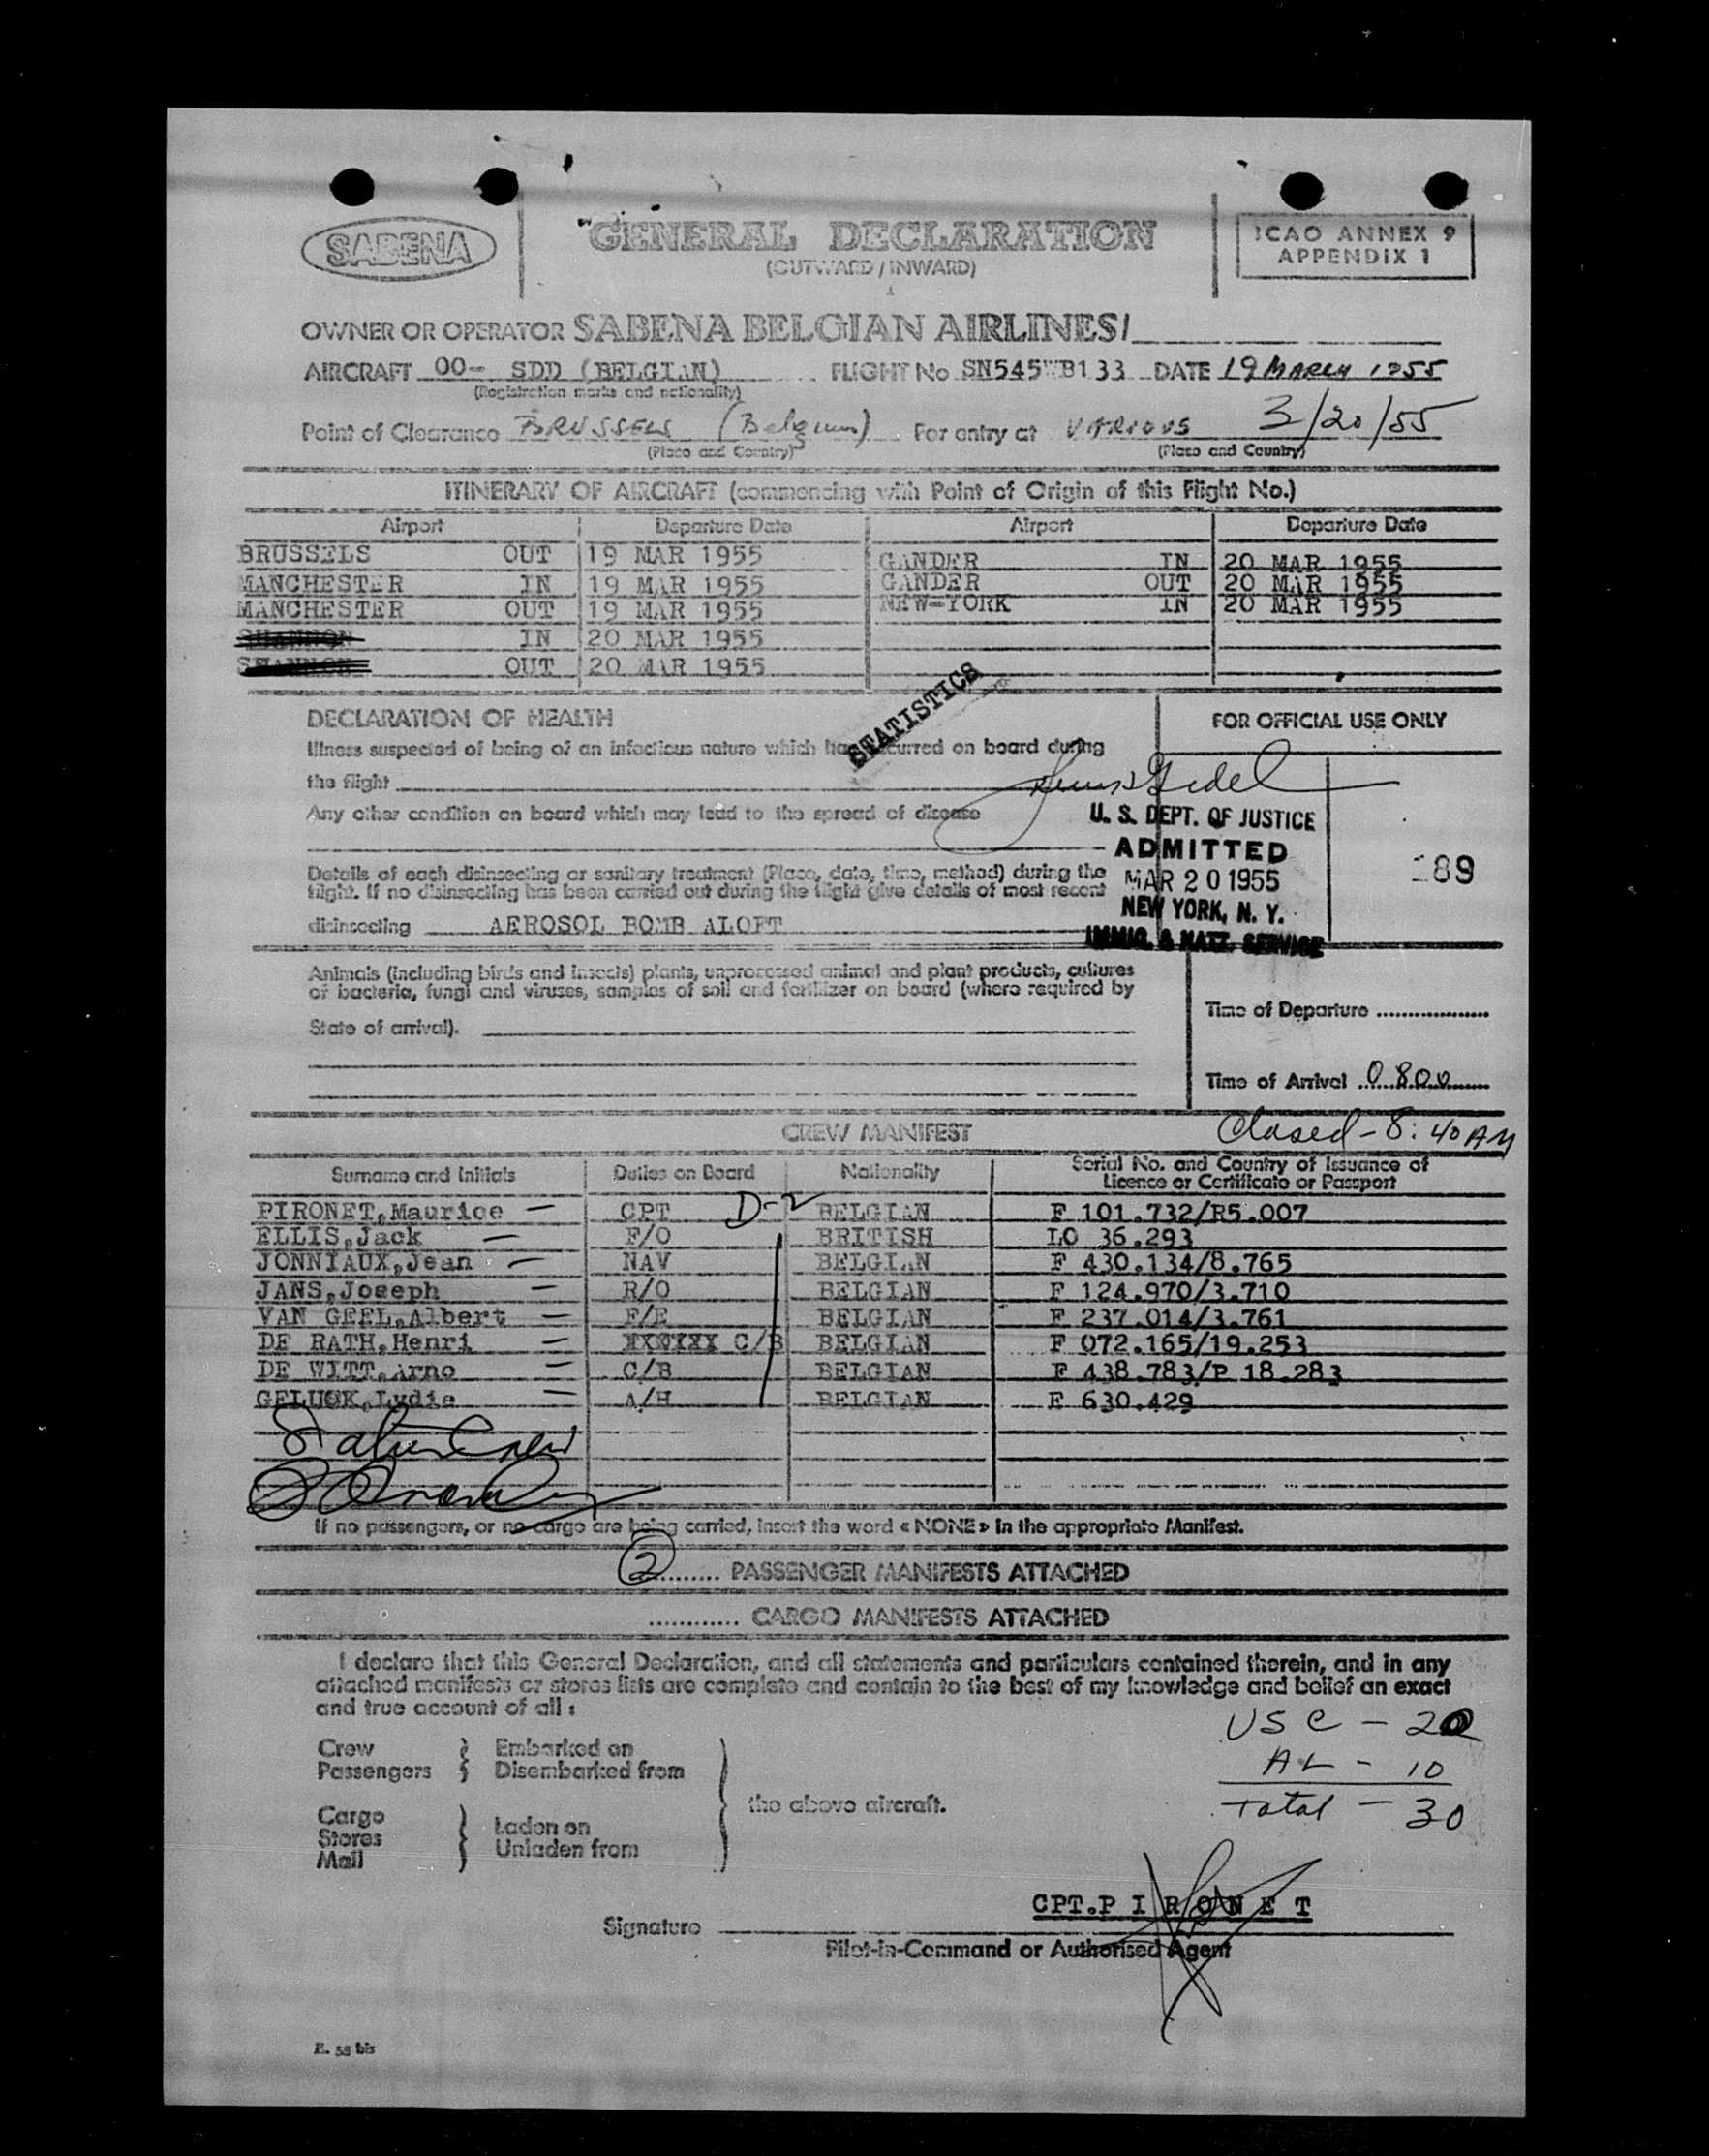 SABENA
GENERAL DECLARATION
(OUTWARD / INWARD)
ICAO ANNEX 9
APPENDIX 1
OWNER OR OPERATOR SABENA BELGIAN AIRLINES
AIRCRAFT OO- SDD (BELGIAN) FLIGHT No SN545 B133 DATE 19 MARCH 1955
(Registration marks and nationality)
Point of Clearance BRUSSELS (Belgium) For entry at VARIOUS 3/20/55
(Place and Country) (Place and Country)
ITINERARY OF AIRCRAFT (commencing with Point of Origin of this Flight No.)
Airport Departure Date Airport Departure Date
BRUSSELS OUT 19 MAR 1955 GANDER IN 20 MAR 1955
MANCHESTER IN 19 MAR 1955 GANDER OUT 20 MAR 1955
MANCHESTER OUT 19 MAR 1955 NEW-YORK IN 20 MAR 1955
SHANNON IN 20 MAR 1955
SHANNON OUT 20 MAR 1955
STATISTICS
DECLARATION OF HEALTH
FOR OFFICIAL USE ONLY
Illness suspected of being of an infectious nature which has occurred on board during
the flight
Any other condition on board which may lead to the spread of disease
U. S. DEPT. OF JUSTICE
ADMITTED
MAR 20 1955
NEW YORK, N. Y.
IMMIG. & NATZ. SERVICE
189
Details of each disinsecting or sanitary treatment (Place, date, time, method) during the
flight. If no disinsecting has been carried out during the flight give details of most recent
disinsecting AEROSOL BOMB ALOFT
Animals (including birds and insects) plants, unprocessed animal and plant products, cultures
of bacteria, fungi and viruses, samples of soil and fertilizer on board (where required by
State of arrival).
Time of Departure
Time of Arrival 0800
Closed - 8:40 AM
CREW MANIFEST
Surname and Initials Duties on Board Nationality Serial No. and Country of Issuance of
Licence or Certificate or Passport
PIRONET,Maurice — CPT D-2 BELGIAN F 101.732/R5.007
ELLIS,Jack — F/O BRITISH LO 36.293
JONNIAUX,Jean — NAV BELGIAN F 430.134/8.765
JANS,Joseph — R/O BELGIAN F 124.970/3.710
VAN GEEL,Albert — F/E BELGIAN F 237.014/3.761
DE RATH,Henri — XXXXXX C/B BELGIAN F 072.165/19.253
DE WITT,Arno — C/B BELGIAN F 438.783/P 18.283
GELUCK,Lydie — A/H BELGIAN E 630.429
If no passengers, or no cargo are being carried, insert the word « NONE » in the appropriate Manifest.
2 PASSENGER MANIFESTS ATTACHED
CARGO MANIFESTS ATTACHED
I declare that this General Declaration, and all statements and particulars contained therein, and in any
attached manifests or stores lists are complete and contain to the best of my knowledge and belief an exact
and true account of all :
USC - 20
AL - 10
Total - 30
Crew
Passengers
Embarked on
Disembarked from
the above aircraft.
Cargo
Stores
Mail
Laden on
Unladen from
CPT.P I R O N E T
Signature
Pilot-in-Command or Authorised Agent
E. 58 bis